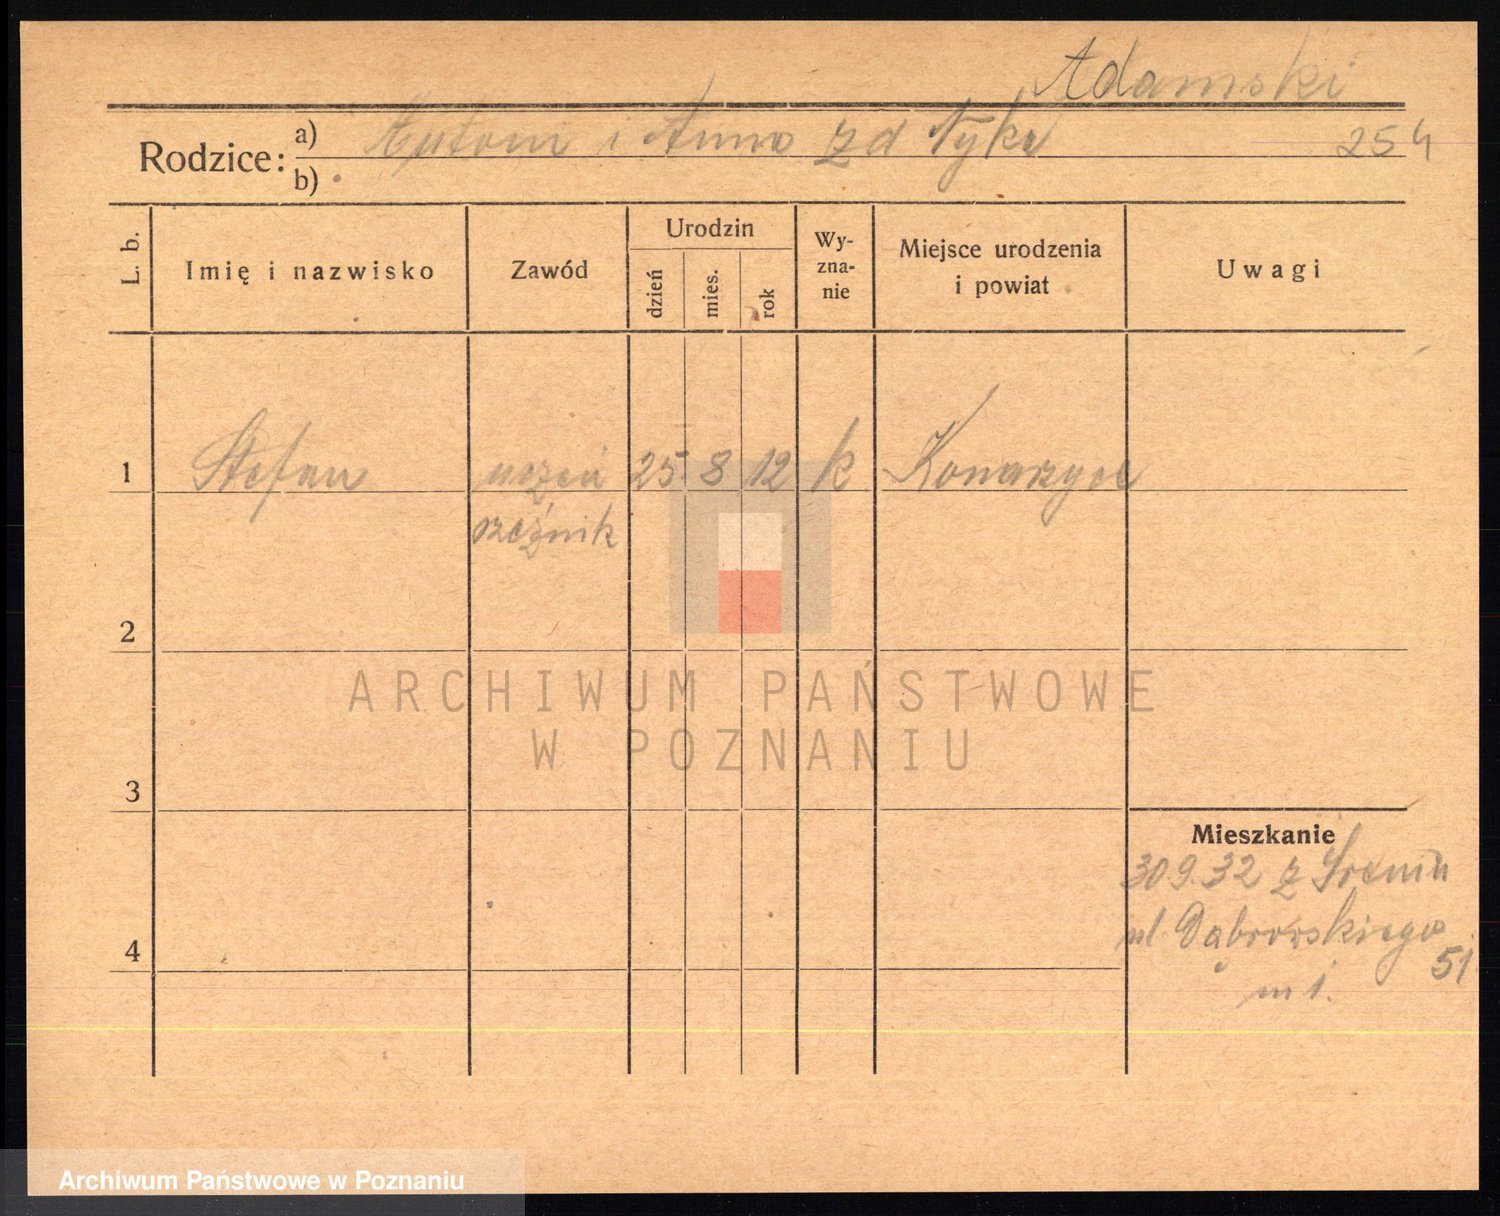 Adamski
Rodzice: a) Antoni i Anna z d Nyka 254
b)
L. b. Imię i nazwisko Zawód Urodzin dzień mies. rok Wy-zna-nie Miejsce urodzenia i powiat Uwagi
1 Stefan uczeń 25 8 12 k Konarzyce
rzeźnik
2
3
Mieszkanie
30 9.32 z Śremu
ul. Dąbrowskiego
4 51
m 1.
ARCHIWUM PAŃSTWOWE
W POZNANIU
Archiwum Państwowe w Poznaniu